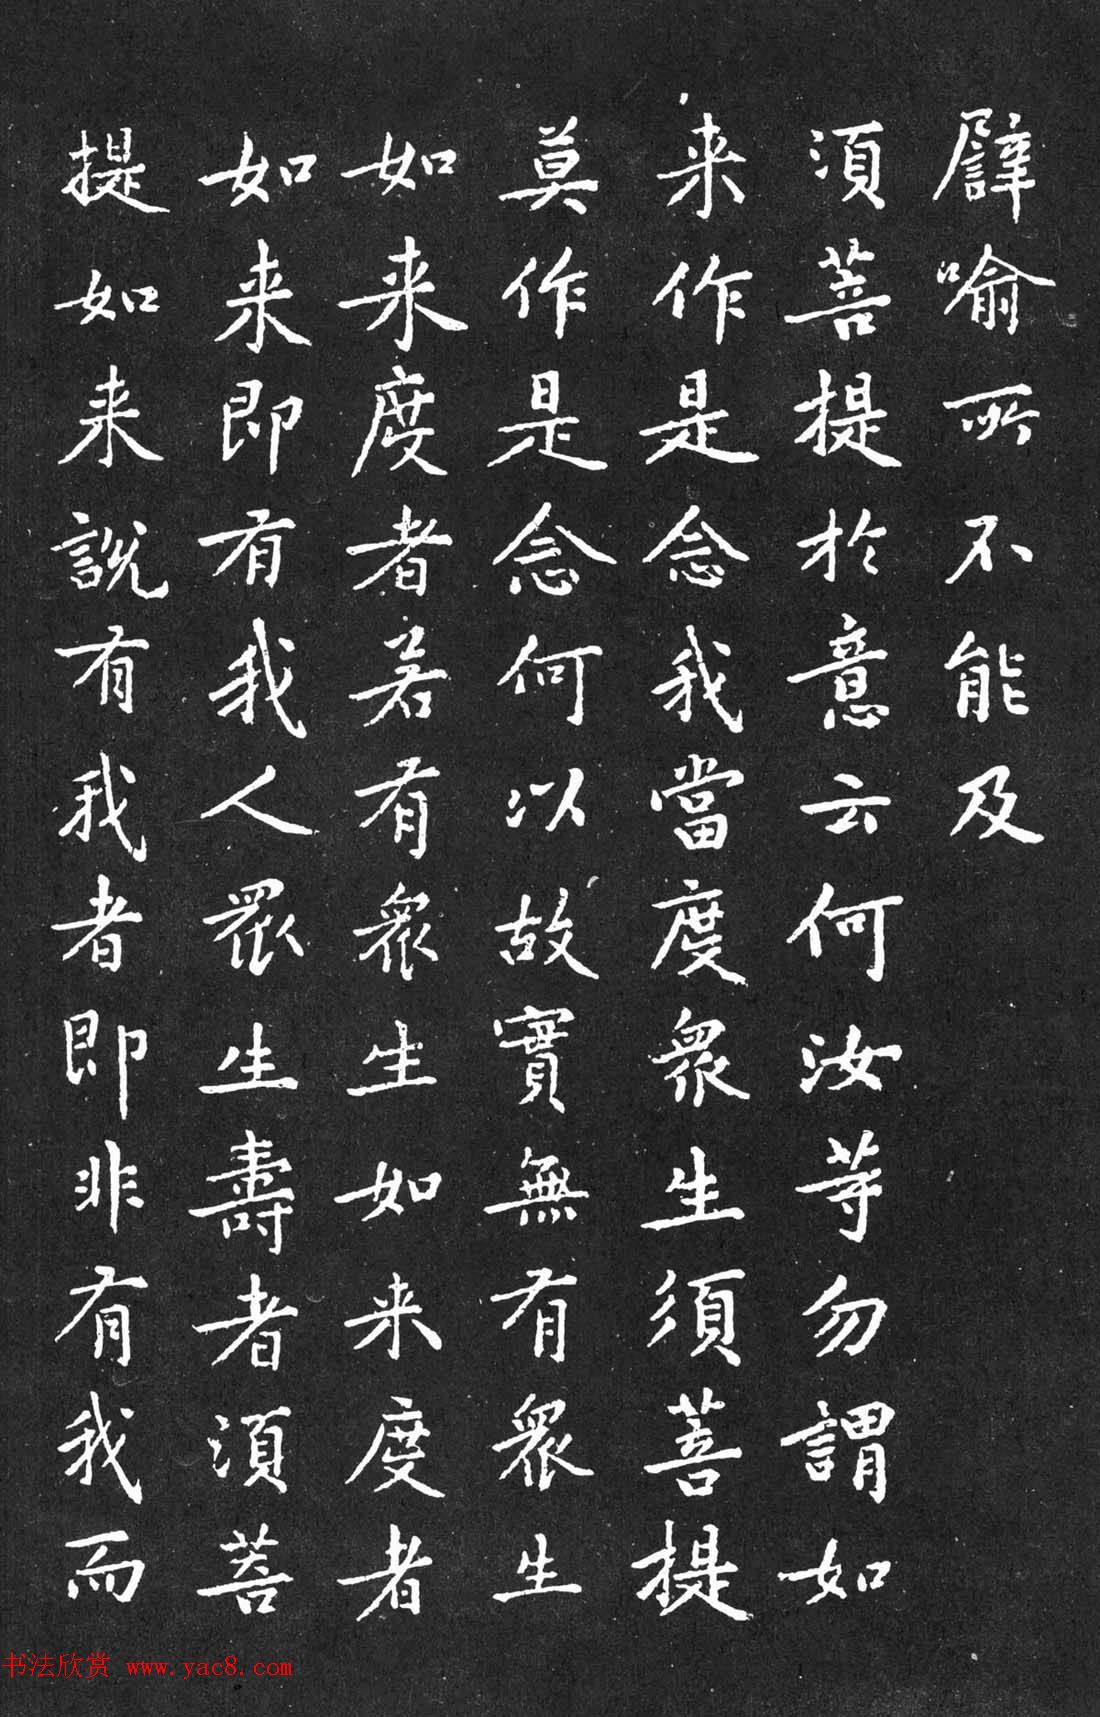 譬喻所不能及
須菩提於意云何汝等勿謂如
来作是念我當度衆生須菩提
莫作是念何以故實無有衆生
如来度者若有衆生如来度者
如来即有我人衆生壽者須菩
提如来説有我者即非有我而
书法欣赏 www.yac8.com